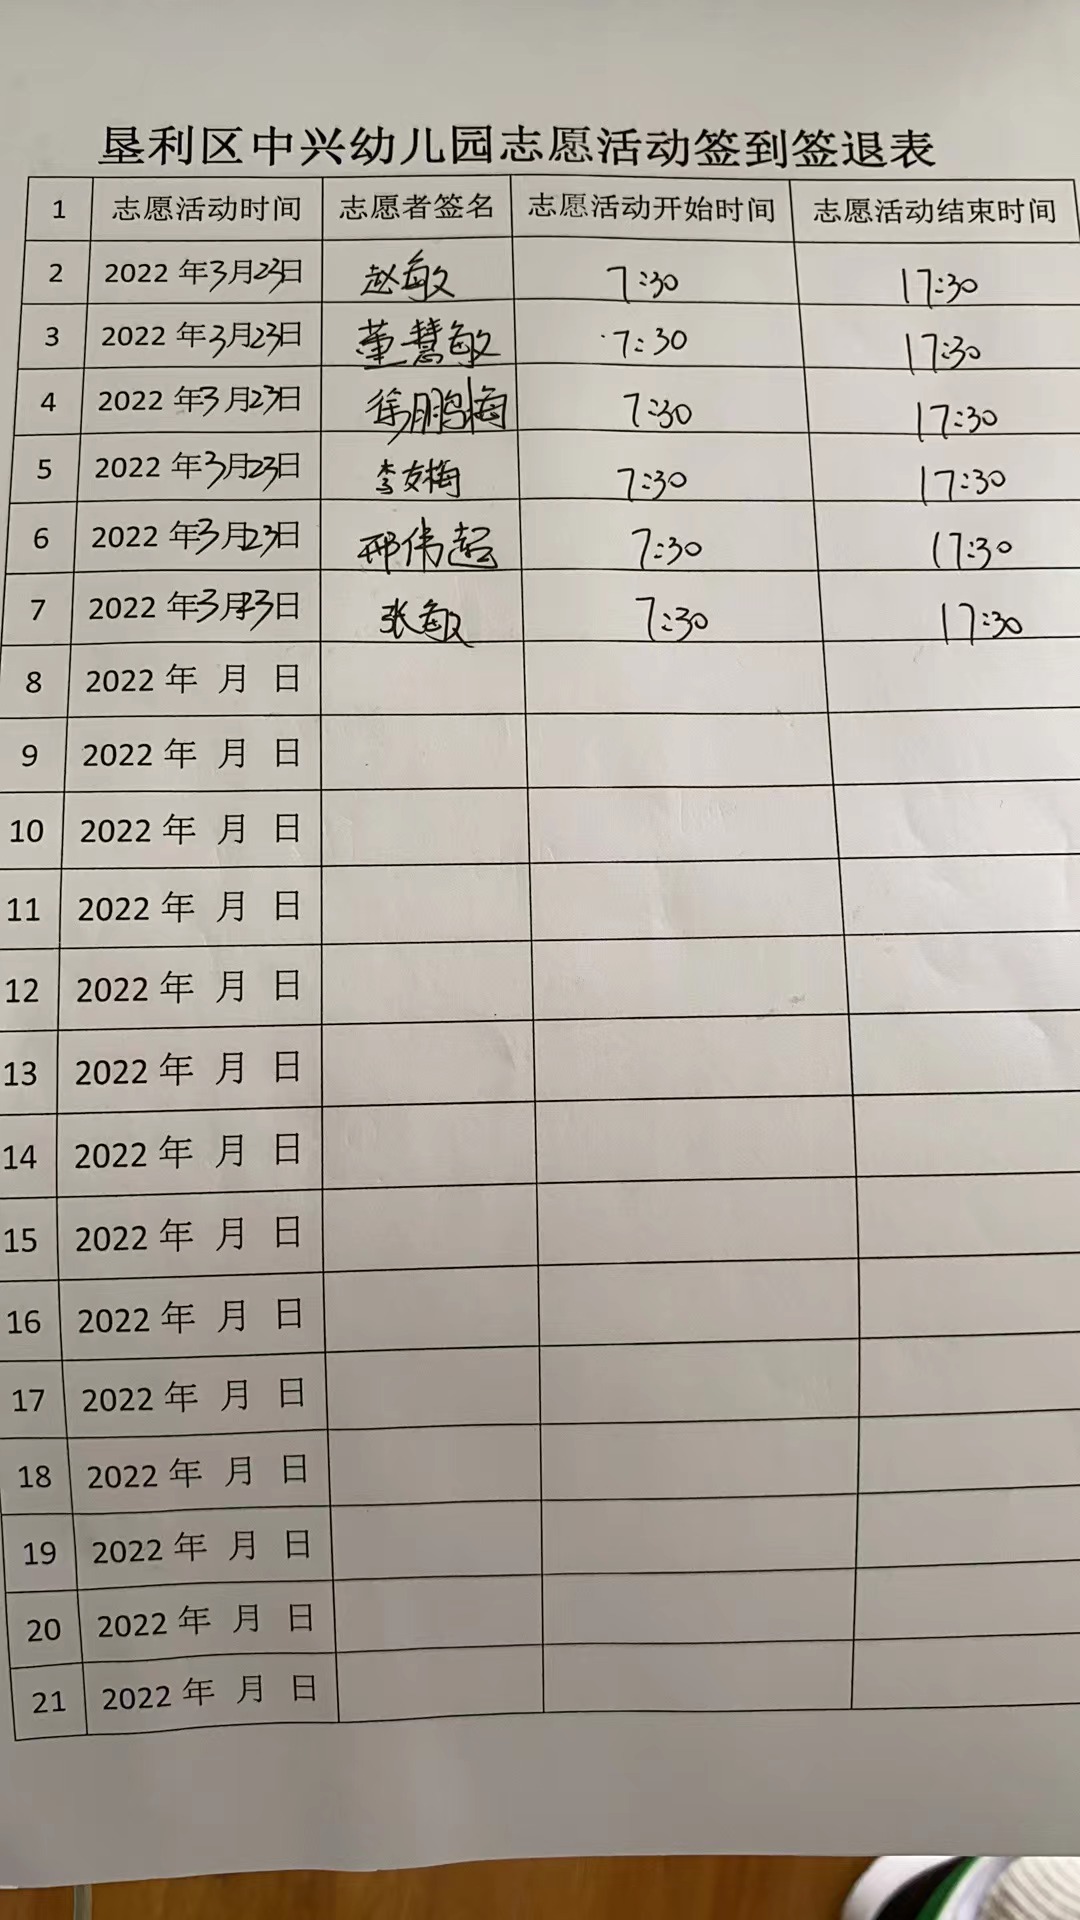 垦利区中兴幼儿园志愿活动签到签退表
1 志愿活动时间 志愿者签名 志愿活动开始时间 志愿活动结束时间
2 2022年3月23日 赵敏 7:30 17:30
3 2022年3月23日 董慧敏 7:30 17:30
4 2022年3月23日 徐鹏梅 7:30 17:30
5 2022年3月23日 李友梅 7:30 17:30
6 2022年3月23日 邢伟超 7:30 17:30
7 2022年3月23日 张敏 7:30 17:30
8 2022年 月 日
9 2022年 月 日
10 2022年 月 日
11 2022年 月 日
12 2022年 月 日
13 2022年 月 日
14 2022年 月 日
15 2022年 月 日
16 2022年 月 日
17 2022年 月 日
18 2022年 月 日
19 2022年 月 日
20 2022年 月 日
21 2022年 月 日